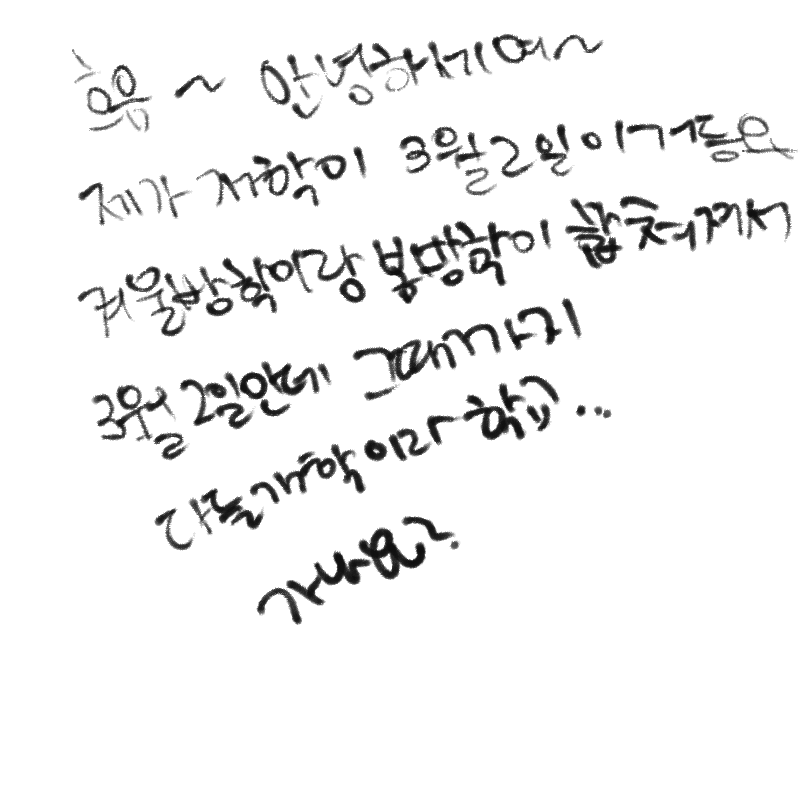 흐음~ 안녕하세여~
제가 개학이 3월2일이거등요
겨울방학이랑 봄방학이 합쳐져서
3월 2일안데 그때까지
다들개학이라 학교...
가나요?